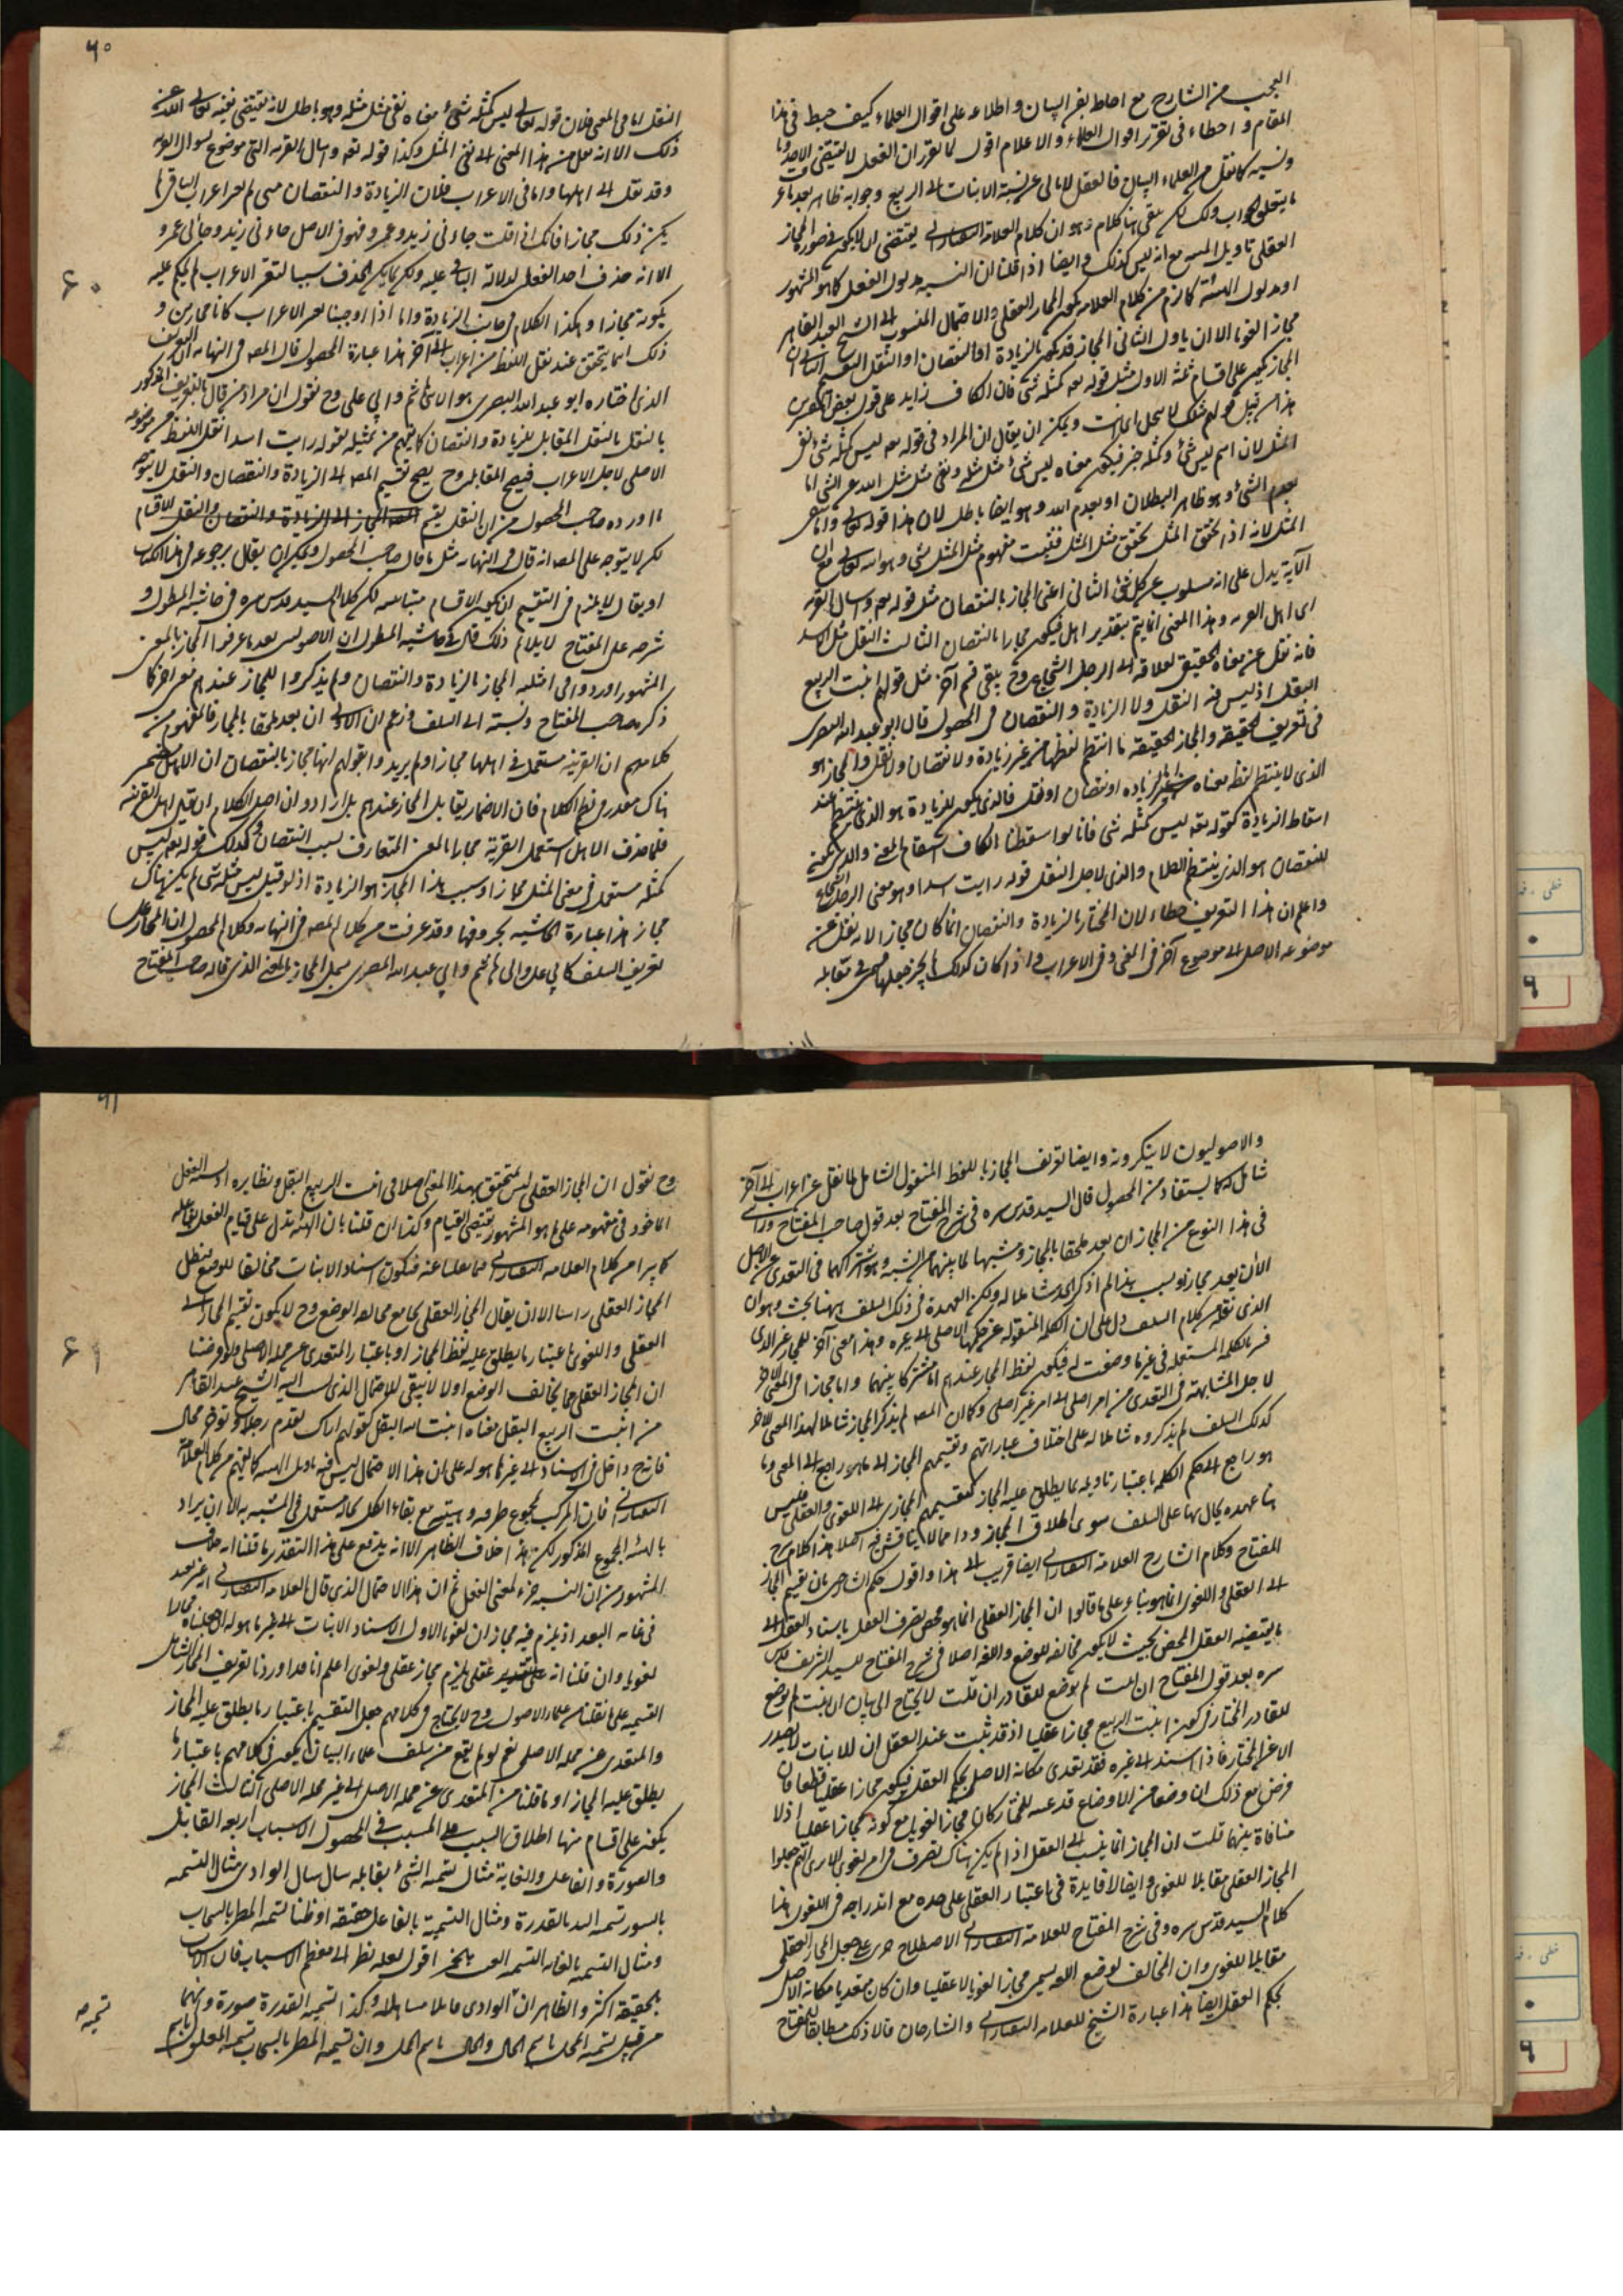 العجب من الشارح مع احاطته بفن البيان و اطلاعه على اقوال العلماء كيف خبط فى هذا
المقام و اخطاء فى تقرير اقوال العلماء والاعلام اقول لما تقرر ان الفعل لا يقتضى الا
ونسبه كما نقل من العلماء البيان فالعقل لا يابى عن نسبة الانبات الى الربيع وجوابه ظاهر بعد
ما يتعلق الجواب ولكن بقى ههنا كلام وهو ان كلام العلامة التفتازانى يقتضى ان لا يكون فى صورة المجاز
العقلى تاويل مع انه ليس كذلك و ايضا اذا قلنا ان النسبة مدلول الفعل كما هو المشهور
او مدلول الهيئة كما لزم من كلام العلامة يكون المجاز العقلى والاحتمال المنسوب الى الشيخ عبد القاهر
مجازا لغويا الا ان ياول الثانى المجاز قد يكون بالزيادة او النقصان او النقل
المجاز يكون على اقسام ثلثة الاول مثل قوله تعه كمثله شى فان الكاف زايد على قول بعض
هذا من قبيل قولهم مثلك لا يبخل اى انت ويمكن ان يقال ان المراد فى قوله تعه ليس كمثله شئ نفى
المثل لان اسم ليس شئ وكمثله خبر فيكون معناه ليس شئ مثل مثله ونفى مثل مثل الله عن الشئ اما
بعدم الشئ وهو ظاهر البطلان او بعدم الله وهو ايضا باطل لان هذا قوله تعالى واما
المثل لانه اذا تحقق المثل تحقق مثل المثل فثبت مفهوم مثل المثل شئ وهو الله تعالى مع ان
الآية يدل على انه مسلوب عن كل شئ الثانى اعنى المجاز بالنقصان مثل قوله تعه واسال القرية
اى اهل القرية وهذا المعنى انما يتم بتقدير اهل فيكون مجازا بالنقصان الثالث النقل مثل الاسد
فانه نقل عن معناه الحقيقى لعلاقة الى الرجل الشجاع وح يبقى قسم آخر مثل قولهم انبت الربيع
البقل اذ ليس فيه النقل ولا الزيادة و النقصان فى المحصول قال ابو عبد الله البصرى
فى تعريف الحقيقة والمجاز الحقيقة ما انتظم لفظها من غير زيادة ولا نقصان ولا نقل والمجاز هو
الذى لا ينتظم لفظ معناه لزيادة او نقصان او نقل فالذى يكون للزيادة هو الذى ينتظم عند
اسقاط الزيادة كقوله تعه ليس كمثله شى فانا لو اسقطنا الكاف استقام المعنى والذى يكون
للنقصان هو الذى ينتظم الكلام والذى لاجل النقل قوله رايت اسدا وهو معنى الرجل الشجاع
واعلم ان هذا التعريف خطاء لان المجاز بالزيادة والنقصان انما كان مجازا لانه نقل عن
موضوعه الاصل الى موضوع آخر فى المعنى وفى الاعراب و اذا كان كذلك لم يجز جعلها قسمى فى مقابلة
٦٠
النقل اما فى المعنى فلان قوله تعالى ليس كمثله شئ معناه نفى مثل مثله وهو باطل لانه يقتضى نفيه تعالى الله عن
ذلك الا انه نقل من هذا المعنى الى نفى المثل وكذا قوله تعه واسال القرية التى موضوع لسوال القرية
وقد نقل الى اهلها واما فى الاعراب فلان الزيادة والنقصان متى لم تغير اعراب الباقى لم
يكن ذلك مجازا فانك اذا قلت جاءنى زيد وعمرو فهو فى الاصل جاءنى زيد وجاءنى عمرو
الا انه حذف احد الفعل لدلالة الباقى عليه ولكن لما لم يكن الحذف سببا لتغير الاعراب لم يحكم عليه
٦٠
بكونه مجازا وهكذا الكلام فى جانب الزيادة واما اذا اوجبنا تغير الاعراب كانا مجازين و
ذلك انما يتحقق عند نقل اللفظ من اعراب الى آخر هذا عبارة المحصول قال المصـ فى النهاية ان التعريف
الذى اختاره ابو عبد الله البصرى هو لابى هاشم و ابى على وح نقول ان مراد من قال بالتعريف المذكور
بالنقل النقل المقابل للزيادة والنقصان كما يفهم من تمثيله بقوله رايت اسدا نقل اللفظ من موضوعه
الاصلى لاجل الاعراب فيصح المقابل وح يصح تقسيم المصـ الى الزيادة والنقصان والنقل لا يتوجه
ما اورده صاحب المحصول من ان النقل يعم الاقسام
لكن لا يتوجه على المصـ انه قال فى النهاية مثل ما قال صاحب المحصول ويمكن ان يقال برجوعه فى هذا الكتاب
او يقال لا يلزم فى التقسيم ان يكون الاقسام متباينة لكن كلام السيد قدس سره فى حاشية المطول و
شرحه على المفتاح لا يلايم ذلك قال فى حاشية المطول ان الاصوليين بعد ما عرفوا المجاز بالمعنى
المشهور اوردوا فى امثلة المجاز بالزيادة والنقصان ولم يذكروا للمجاز عندهم معنى آخر كما
ذكره صاحب المفتاح ونسبته الى السلف وزعم ان الاولى ان يعد ملحقا بالمجاز فالمفهوم من
كلامهم ان القرية مستعملة فى اهلها مجازا ولم يريدوا بقولهم انها مجاز بالنقصان ان الاهل مضمر
هناك مقدر فى نظم الكلام فان الاضمار يقابل المجاز عندهم بل ارادوا ان اصل الكلام ان يقال اهل القرية
فلما حذف الاهل استعمل القرية مجازا بالمعنى المتعارف بسبب النقصان وكذلك قوله تعه ليس
كمثله مستعمل فى معنى المثل مجازا وسبب هذا المجاز هو الزيادة اذ لو قيل ليس مثله شئ لم يكن هناك
مجاز هذا عبارة الحاشية بحروفها وقد عرفت من كلام المصـ فى النهاية وكلام المحصول ان المجاز على
تعريف السلف كابى على وابى هاشم و ابى عبد الله البصرى يشمل المجاز بالمعنى الذى قاله صاحب المفتاح
والاصوليون لا ينكرونه وايضا تعريف المجاز باللفظ المنقول الشامل لما نقل عن اعراب الى آخر
شامل له كما يستفاد من المحصول قال السيد قدس سره فى شرح المفتاح بعد قول صاحب المفتاح ورايى
فى هذا النوع من المجاز ان يعد ملحقا بالمجاز ومشبها لما بينهما من الشبه وهو اشتراكهما فى التعدى عن الاصل
لا ان يعد مجازا وبسبب هذا لم اذكر الحد شاملا له ولكن العهدة فى ذلك على السلف ههنا بحث وهو ان
الذى نقله من كلام السلف دل على ان الكلمة المنقولة عن حكمها الاصلى الى غيره وهذا معنى آخر للمجاز غير الذى
فسر بالكلمة المستعملة فى غير ما وضعت له فيكون لفظ المجاز عندهم اما مشتركا بينهما واما مجازا فى المعنى الآخر
لاجل المشابهة فى التعدى من امر اصلى الى امر غير اصلى وكما ان المصـ لم يذكر المجاز شاملا لهذا المعنى الآخر
كذلك السلف لم يذكروه شاملا له على اختلاف عباراتهم وتقسيمهم المجاز الى ما هو راجع الى المعنى وما
هو راجع الى حكم الكلمة باعتبار تاويله بما يطلق عليه المجاز كتقسيمهم المجاز الى اللغوى والعقلى فليس
هنا عهدة يحال بها على السلف سوى اطلاق المجاز وذا مما لا يناقش فيه اصلا هذا كلام شرح
المفتاح وكلام الشارح العلامة التفتازانى ايضا قريب الى هذا واقول حكم الشارحين بان تقسيم المجاز
الى العقلى واللغوى انما هو بناء على ما قالوا ان المجاز العقلى انما هو محض تصرف العقل باسناد الفعل الى
ما يقتضيه العقل المحض بحيث لا يكون مخالفة للوضع واللغة اصلا فى شرح المفتاح للسيد الشريف قدس
سره بعد قول المفتاح ان انبت لم يوضع للقادر ان قلت لا يحتاج الى بيان ان انبت لم يوضع
للقادر المختار فى كون انبت الربيع مجازا عقليا اذ قد ثبت عند العقل ان الانبات لا يصدر
الا عن المختار فاذا اسند الى غيره فقد تعدى مكانه الاصلى بحكم العقل فيكون مجازا عقليا قطعا فان
فرض مع ذلك ان وضعا من الاوضاع قد عينه للمختار كان مجازا لغويا مع كونه مجازا عقليا اذ لا
منافاة بينهما قلت ان المجاز انما ينسب الى العقل اذا لم يكن هناك تصرف فى امر لغوى الا يرى انهم جعلوا
المجاز العقلى مقابلا للغوى وايضا لا فايدة فى اعتبار العقلى على حده مع اندراجه فى اللغوى هذا
كلام السيد قدس سره وفى شرح المفتاح للعلامة التفتازانى الاصطلاح جرى على جعل المجاز العقلى
مقابلا للغوى وان المخالف لوضع اللغة يسمى مجازا لغويا لا عقليا وان كان متعديا مكانه الاصلى
بحكم العقل ايضا هذا عبارة الشيخ للعلامة التفتازانى والشارحان قالا ذلك مطابقا للمفتاح
٦١
وح نقول ان المجاز العقلى ليس بمتحقق بهذا المعنى اصلا فى انبت الربيع البقل ونظايره اذ نسبة الفعل
الماخوذ فى مفهومه على ما هو المشهور يقتضى القيام وكذا ان قلنا بان الهيئة تدل على قيام الفعل بفاعله
كما يرا من كلام العلامة التفتازانى فيما نقلنا عنه فيكون اسناد الانبات مخالفا للوضع فبطل
المجاز العقلى راسا الا ان يقال المجاز العقلى يجامع مخالفة الوضع وح لا يكون تقسيم المجاز الى
العقلى واللغوى باعتبار ما يطلق عليه لفظ المجاز او باعتبار المتعدى عن محله الاصلى ولو فرضنا
٦١
ان المجاز العقلى مما يخالف الوضع اولا لا يبقى للاحتمال الذى نسب اليه الشيخ عبد القاهر
من انبت الربيع البقل معناه انبت الله البقل كقولهم اراك تقدم رجلا وتؤخر محال
فانه ح داخل فى الاسناد الى غير ما هو له على ان هذا الاحتمال ليس فيه تاويل الهيئة كما يفهم من كلام العلامة
التفتازانى فان المركب لمجموع طرفيه وهيئته مع بقاء الكل بحاله مستعمل فى المشبه به الا ان يراد
بالهيئة المجموع المذكور لكن هذا خلاف الظاهر الا انه يندفع على هذا التقدير ما قلنا انه خلاف
المشهور من ان النسبة جزء لمعنى الفعل ثم ان هذا الاحتمال الذى قال العلامة التفتازانى انه غير بعيد
فى غاية البعد اذ يلزم فيه مجازان لغويان الاول الاسناد الانبات الى غير ما هو له ان جعلناه مجازا
لغويا وان قلنا انه عقلى يلزم مجاز عقلى ولغوى اعلم انا قد اوردنا تعريف المجاز الشامل
القسمية على ما نقلنا من علماء الاصول وح لا يحتاج فى كلامهم جعل التقسيم باعتبار ما يطلق عليه المجاز
والمتعدى عن محله الاصلى نعم لو لم يقع من سلف علماء البيان يكون فى كلامهم باعتبار ما
يطلق عليه المجاز او ما قلنا من المتعدى عن محله الاصل الى غير محله الاصلى الثالث المجاز
يكون على اقسام منها اطلاق السبب على المسبب فى المحصول الاسباب اربعة القابل
والصورة والفاعل والغاية مثال تسمية الشئ بقابله سال سال الوادى مثال التسمية
بالصورة تسمية اليد بالقدرة ومثال التسمية بالفاعل حقيقة او ظنا تسمية المطر بالسحاب
ومثال التسمية بالغاية التسمية العنب بالخمر اقول لعله نظر الى معظم الاسباب فان الاسباب
بالحقيقة اكثر والظاهر ان الوادى قابلا مساهلة وكذا تسمية القدرة صورة وانهما
من قبيل تسمية المحل باسم الحال والحال باسم المحل وان تسمية المطر بالسحاب تسمية المعلول باسم
تسميه
خطى
٦
خطى
٦